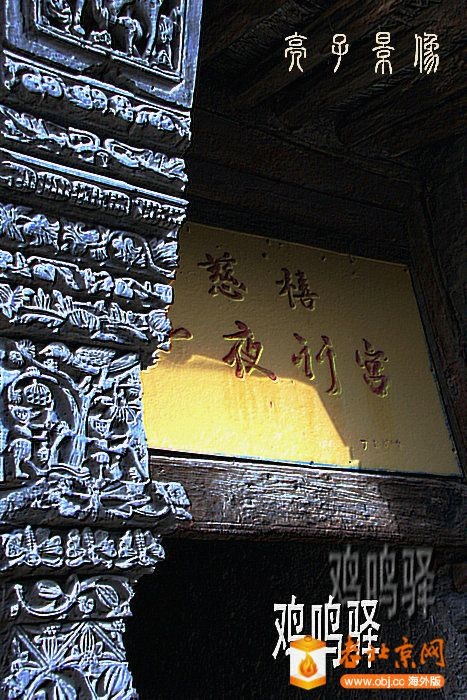 亮子景像
慈禧
一夜行宫
鸡鸣驿
鸡鸣驿
老北京网
www.obj.cc 海外版